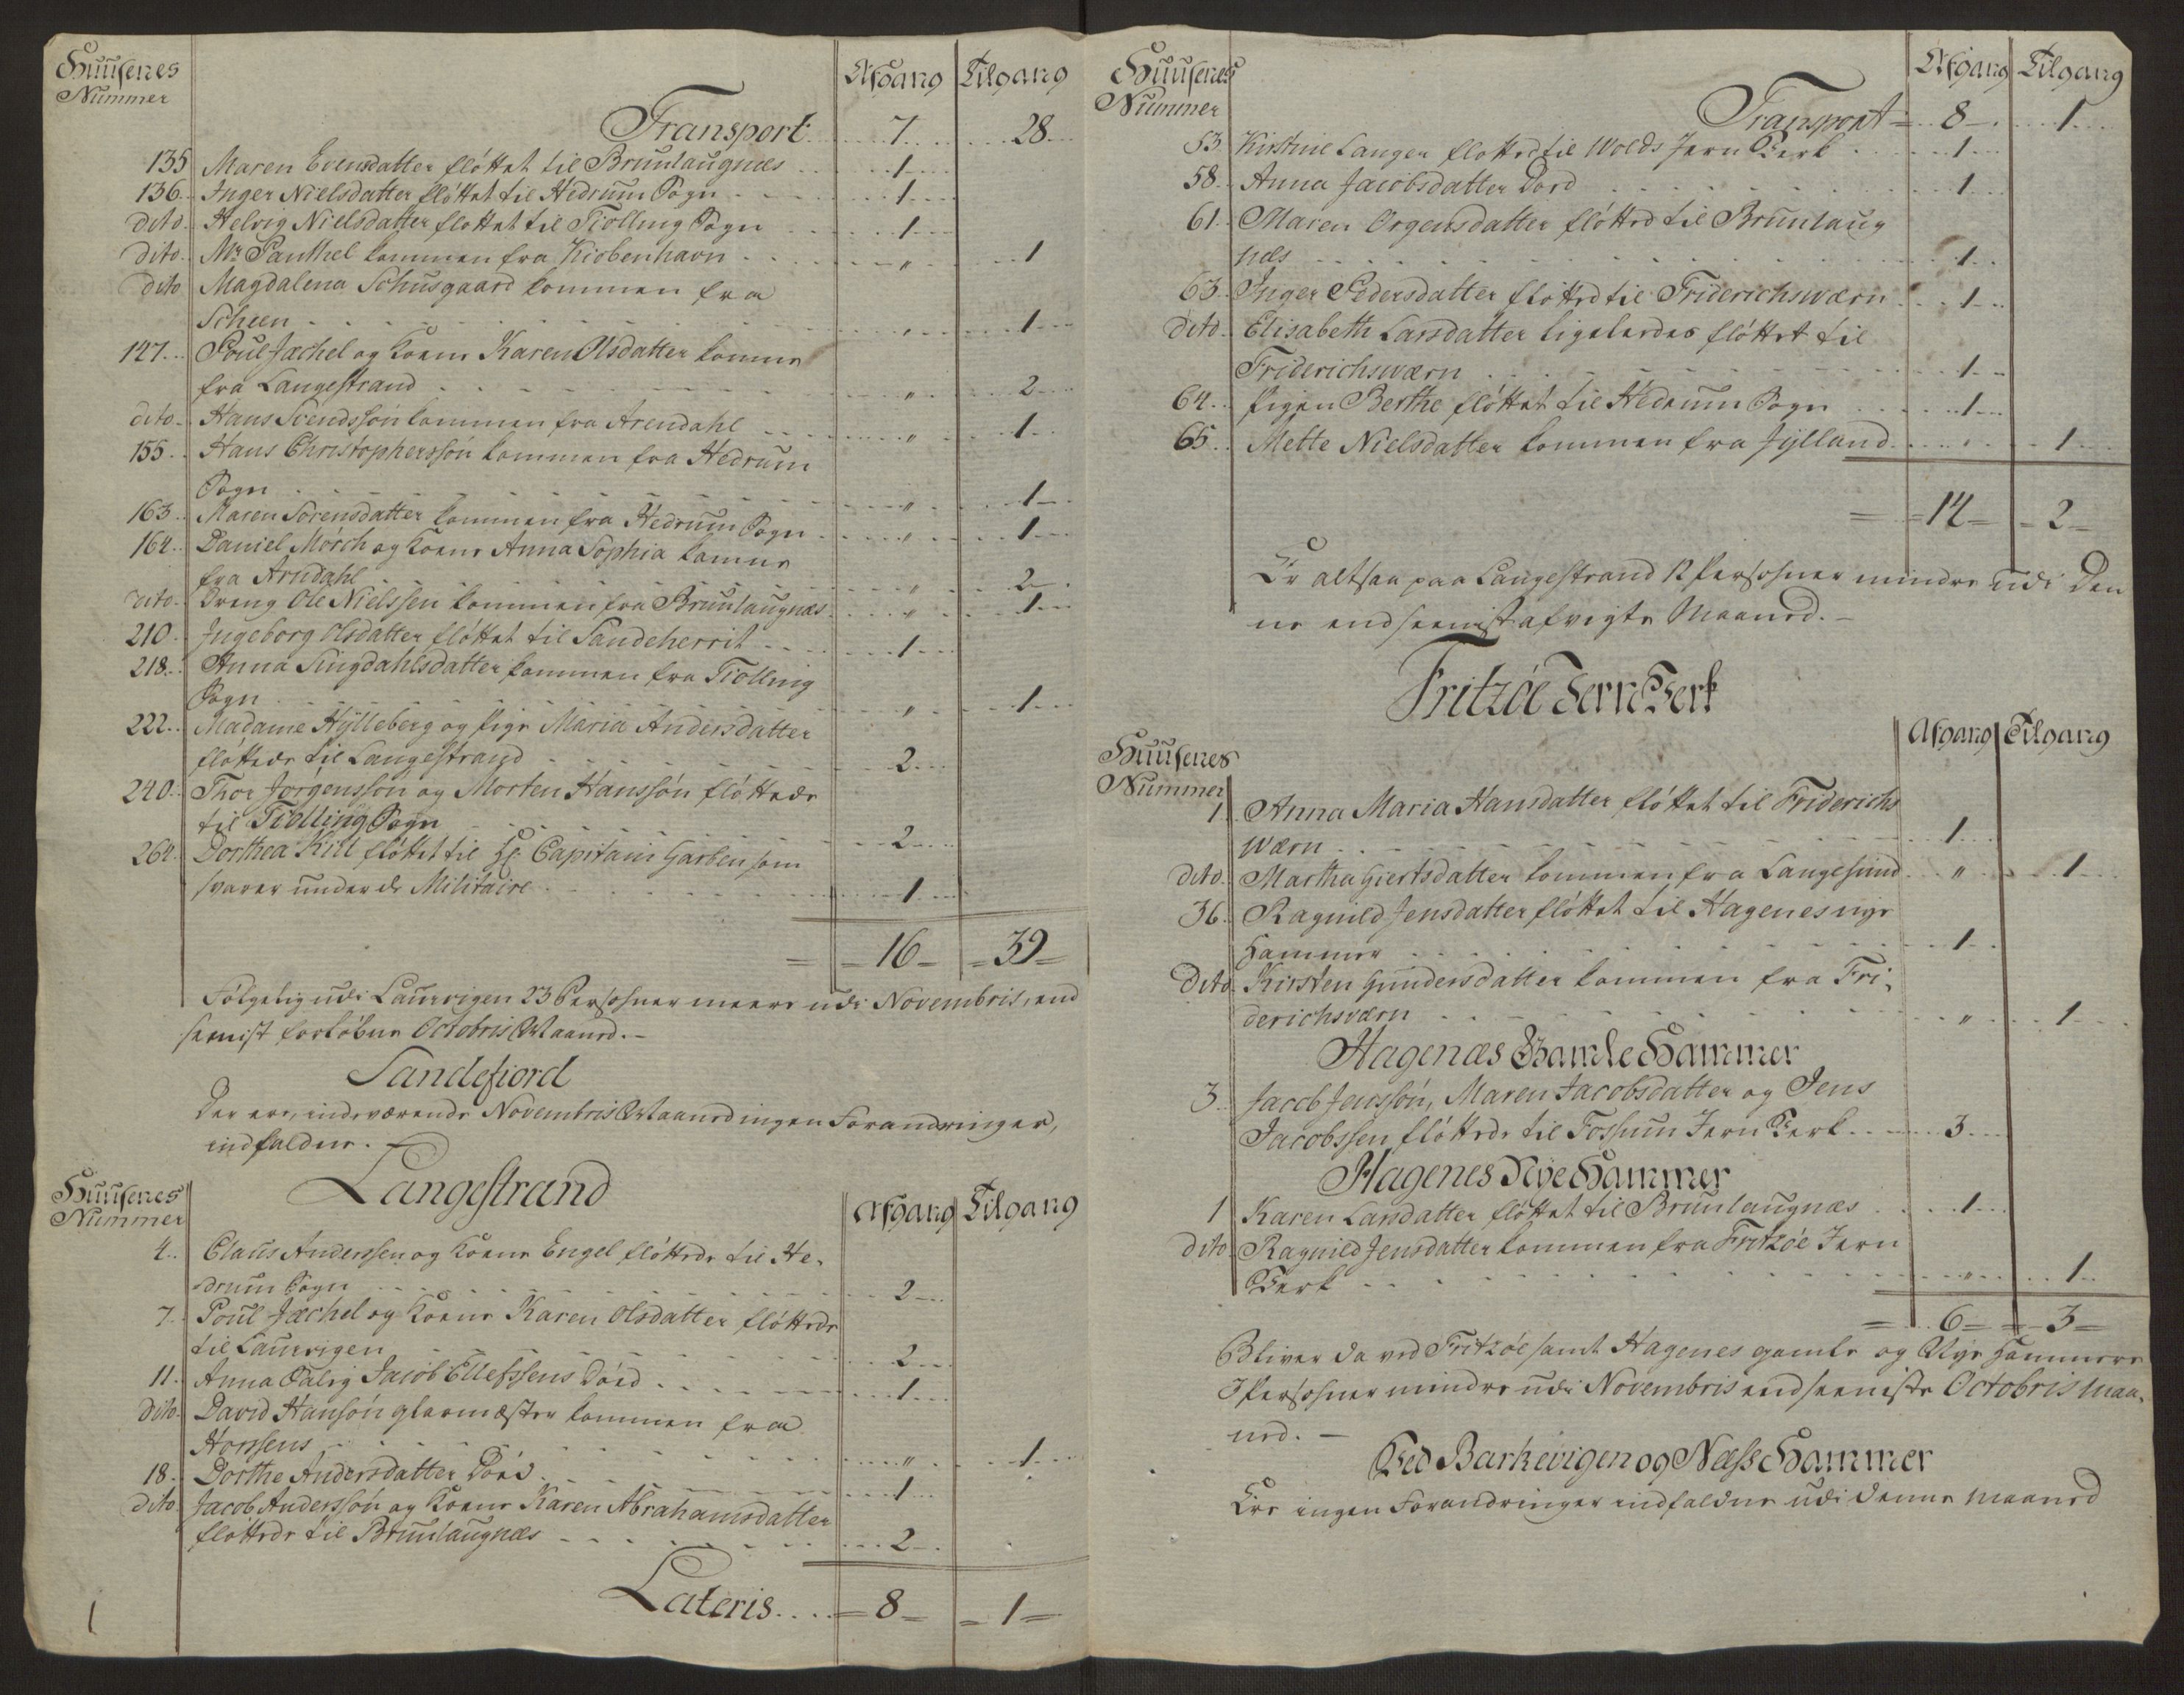 Huusenes
Nummer
Afgang Tilgang
Transport 7 28
135 Maren Evensdatter fløttet til Brunlaugnæs 1
136 Inger Nielsdatter fløttet til Hedrum Sogn 1
dito Helvig Nielsdatter fløttet til Tiølling Sogn 1
dito Mr Panthel kommen fra Kiøbenhavn " 1
dito Magdalena Schusgaard kommen fra
Scheen " 1
147 Poul Jæchel og Kone Karen Olsdatter komne
fra Langestrand " 2
dito Hans Svendssøn kommen fra Arendahl " 1
155 Hans Christopherssøn kommen fra Hedrum
Sogn " 1
163 Maren Sørensdatter kommen fra Hedrum Sogn " 1
164 Daniel Mørch og Kone Anna Sophia komne
fra Arndahl " 2
dito Dreng Ole Nielssen kommen fra Brunlaugnæs " 1
210 Ingeborg Olsdatter fløttet til Sandeherrit 1
218 Anna Singdahlsdatter kommen fra Tiølling
Sogn " 1
222 Madame Hylleberg og Pige Maria Andersdatter
fløttede til Langestrand 2
240 Thor Jørgenssøn og Morten Hanssøn fløttede
til Tiølling Sogn 2
264 Dorthea Kiil fløttet til Hr Capitain Garben som
svarer under de Militaire 1
= 16 = 39 =
Følgelig udi Laurvigen 23 Persohner meere udi Novembris, end
seenist forløbne Octobris Maaned.
Sandefiord
Der ere indeværende Novembris Maaned ingen Forandringer,
indfaldne.
Langestrand
Huusenes
Nummer
Afgang Tilgang
4 Claus Anderssen og Kone Engel fløttede til He-
drum Sogn 2
7 Poul Jæchel og Kone Karen Olsdatter fløttede
til Laurvigen 2
11 Anna Salig Jacob Ellefssens Død 1
dito David Hansøn glarmæster kommen fra
Horssens " 1
18 Dorthe Andersdatter Død 1
dito Jacob Anderssøn og Kone Karen Abrahamsdatter
fløttede til Brunlaugnæs 2
Lateris = 8 = 1 =
Huusenes
Nummer
Afgang Tilgang
Transport 8 1
53 Kirstine Langen fløtted til Wolds Jern Verk 1
58 Anna Jacobsdatter Død 1
61 Maren Orgensdatter fløtted til Brunlaug
næs 1
63 Inger Pedersdatter fløtted til Friderichswærn 1
dito Elisabeth Larsdatter ligeledes fløttet til
Friderichswærn 1
64 Pigen Berthe fløttet til Hedrum Sogn 1
65 Mette Nielsdatter kommen fra Jylland " 1
= 14 = 2 =
Er altsaa paa Langestrand 12 Persohner mindre udi Den
ne end seenist afvigte Maaned.
Fritzøe Jern Verk
Huusenes
Nummer
Afgang Tilgang
1 Anna Maria Hansdatter fløttet til Friderichs
wærn 1
dito Martha Giertsdatter kommen fra Langesund " 1
36 Ragnild Jensdatter fløttet til Hagenes nye
Hammer 1
dito Kirsten Gundersdatter kommen fra Fri-
derichsværn " 1
Hagenæs Gamle Hammer
3 Jacob Jenssøn, Maren Jacobsdatter og Jens
Jacobssen fløttede til Fossum Jern Verk 3
Hagenes Nye Hammer
1 Karen Larsdatter fløttet til Brunlaugnæs 1
dito Ragnild Jensdatter kommen fra Fritzøe Jern
Verk " 1
= 6 = 3 =
Bliver da ved Fritzøe samt Hagenes gamle og Nye Hammere
3 Persohner mindre udi Novembris end seeniste Octobris Maa-
ned.
Ved Barkevigen og Næss Hammer
Ere ingen Forandringer indfaldne udi denne Maaned